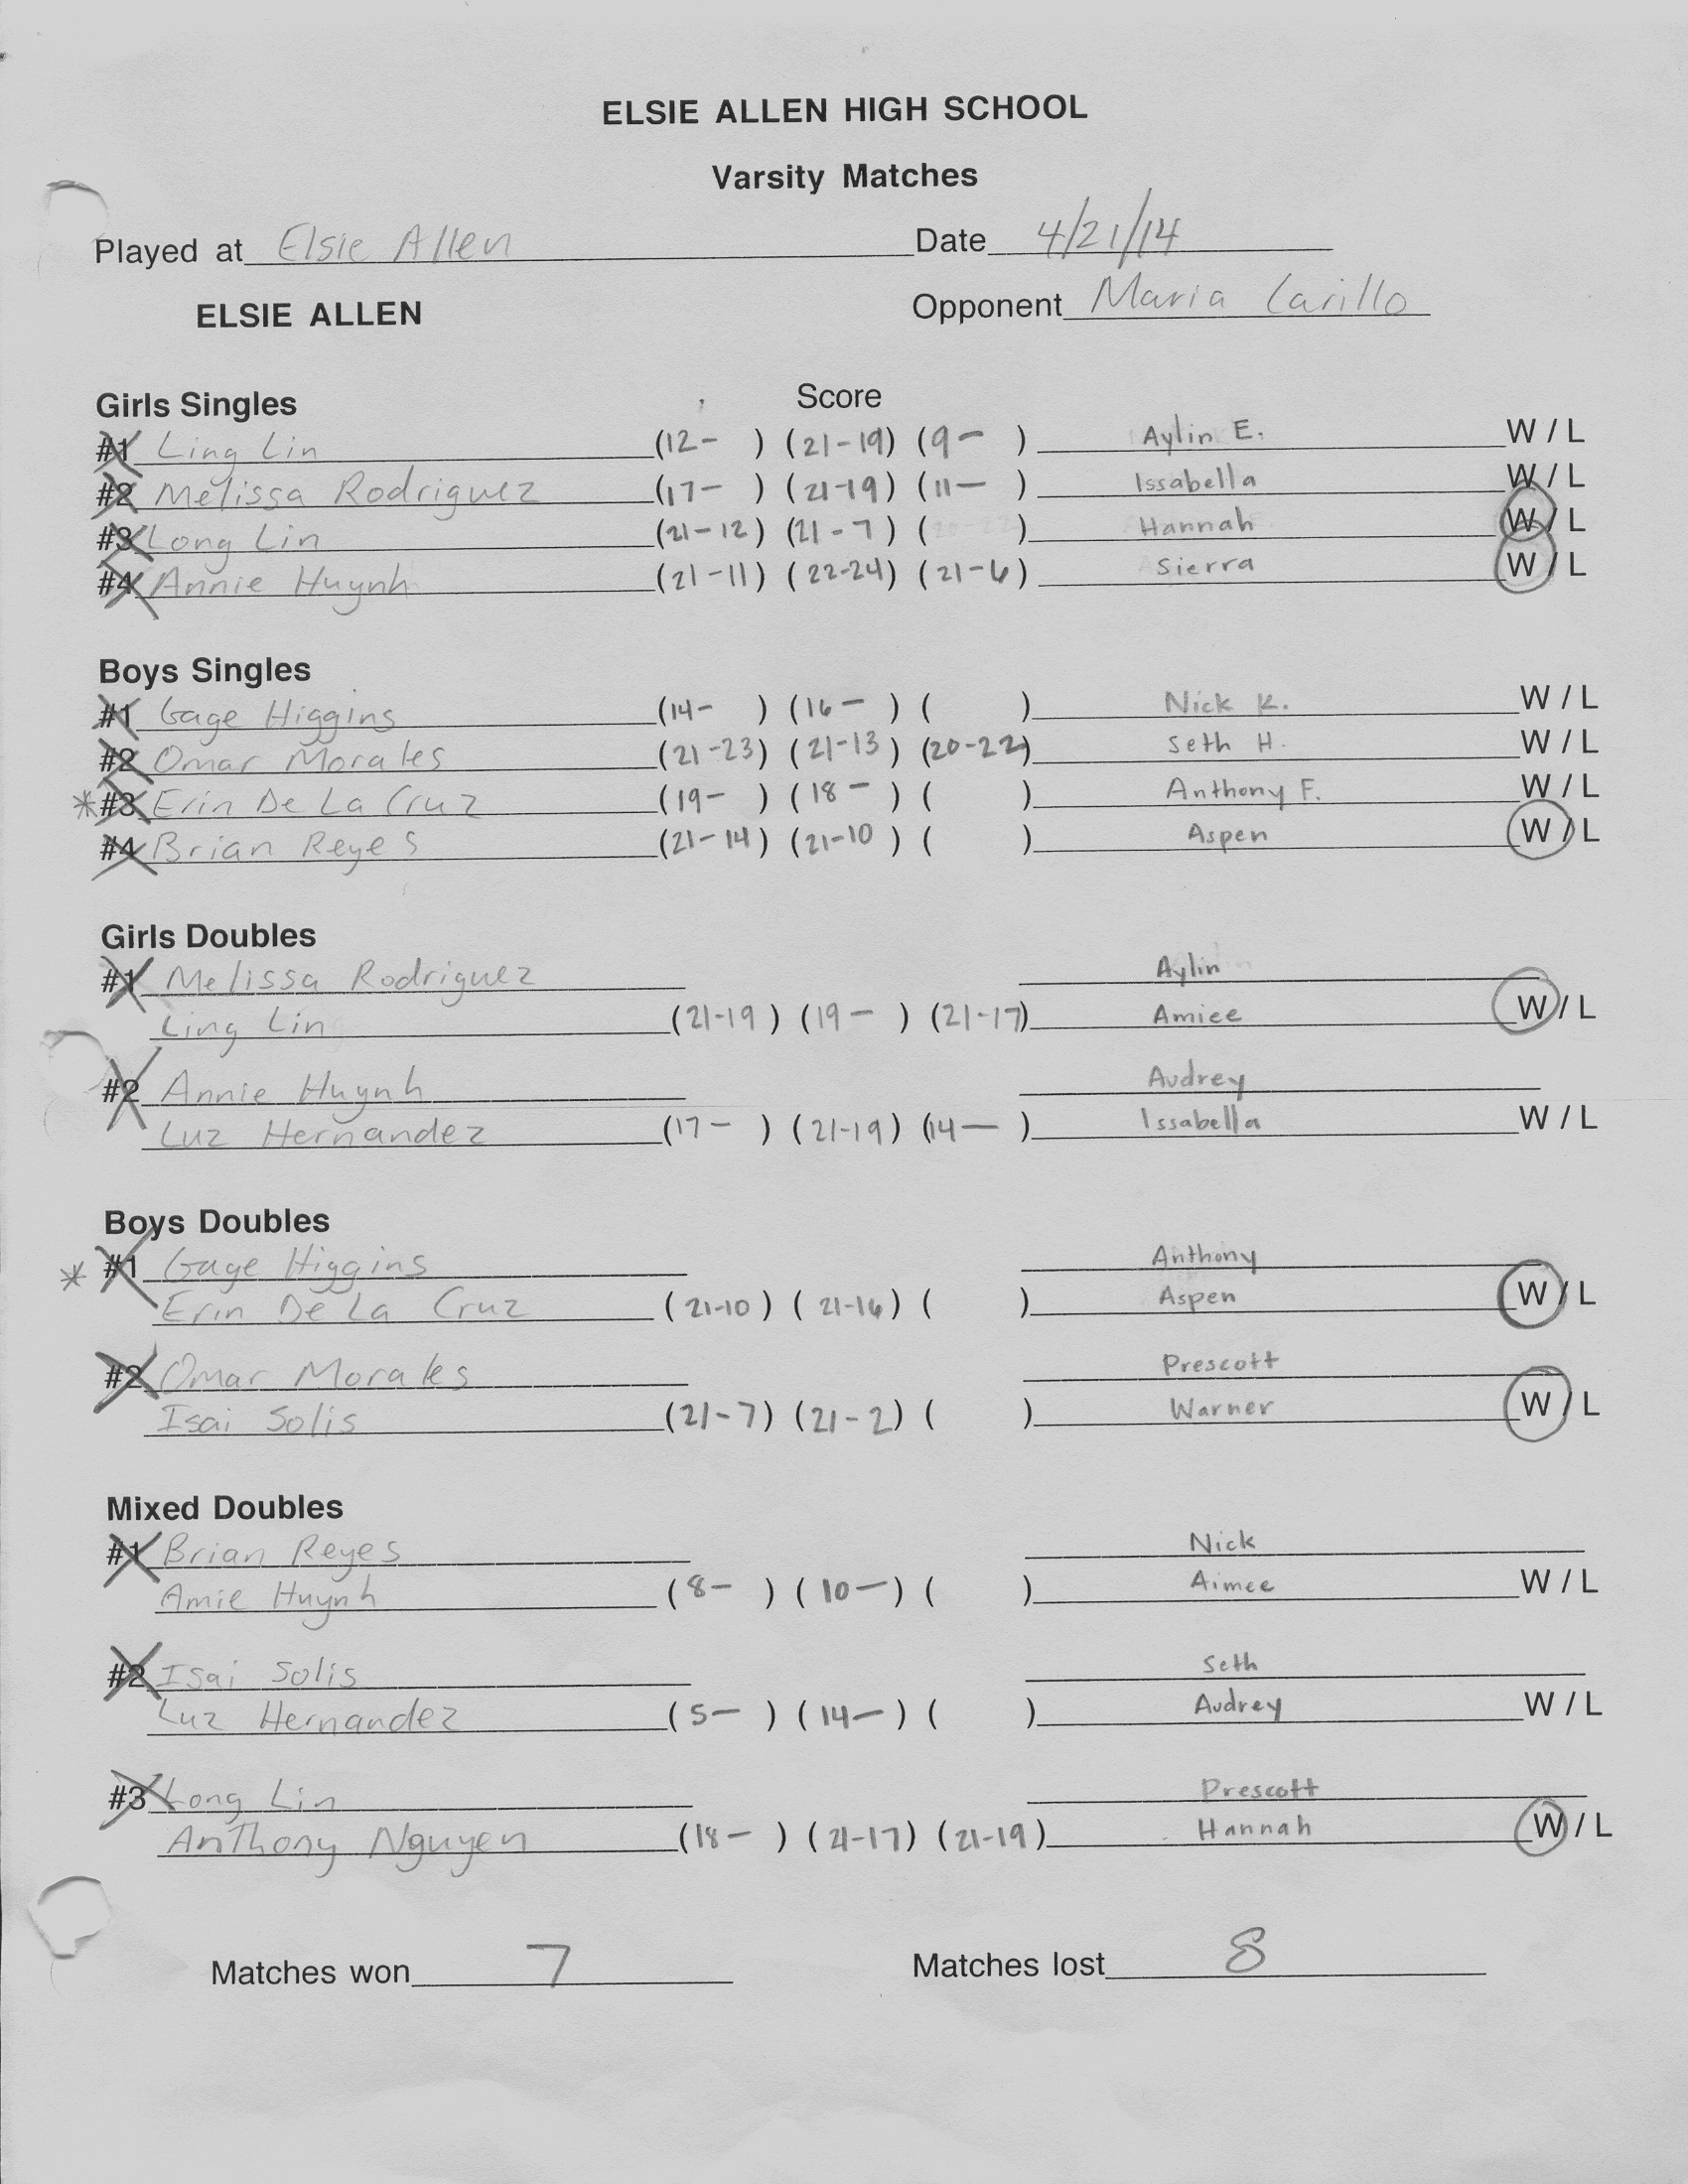 ELSIE ALLEN HIGH SCHOOL
Varsity Matches
Played at Elsie Allen Date 4/21/14
ELSIE ALLEN Opponent Maria Carillo
Girls Singles Score
#1 Ling Lin (12- ) (21-19) (9- ) Aylin E. W / L
#2 Melissa Rodriguez (17- ) (21-19) (11- ) Issabella W / L
#3 Long Lin (21-12) (21-7) ( ) Hannah W / L
#4 Annie Huynh (21-11) (22-24) (21-6) Sierra W / L
Boys Singles
#1 Gage Higgins (14- ) (16- ) ( ) Nick K. W / L
#2 Omar Morales (21-23) (21-13) (20-22) Seth H. W / L
*#3 Erin De La Cruz (19- ) (18- ) ( ) Anthony F. W / L
#4 Brian Reyes (21-14) (21-10) ( ) Aspen W / L
Girls Doubles
#1 Melissa Rodriguez Aylin
Ling Lin (21-19) (19- ) (21-17) Amiee W / L
#2 Annie Huynh Audrey
Luz Hernandez (17- ) (21-19) (14- ) Issabella W / L
Boys Doubles
* #1 Gage Higgins Anthony
Erin De La Cruz (21-10) (21-16) ( ) Aspen W / L
#2 Omar Morales Prescott
Isai Solis (21-7) (21-2) ( ) Warner W / L
Mixed Doubles
#1 Brian Reyes Nick
Amie Huynh (8- ) (10-) ( ) Aimee W / L
#2 Isai Solis Seth
Luz Hernandez (5- ) (14-) ( ) Audrey W / L
#3 Long Lin Prescott
Anthony Nguyen (18- ) (21-17) (21-19) Hannah W / L
Matches won 7 Matches lost 8